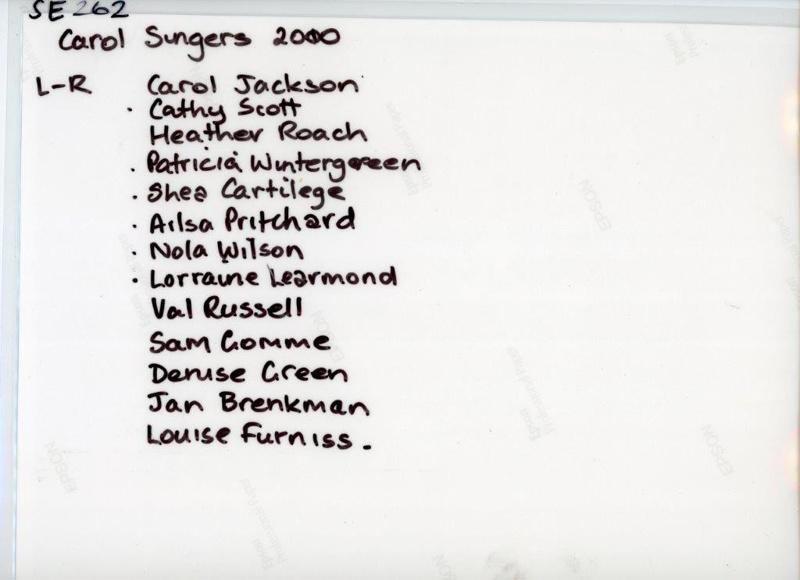 SE262
Carol Singers 2000
L-R Carol Jackson
· Cathy Scott
Heather Roach
· Patricia Wintergreen
· Shea Cartilege
· Ailsa Pritchard
· Nola Wilson
· Lorraine Learmond
Val Russell
Sam Gomme
Denise Green
Jan Brenkman
Louise Furniss.
EPSON
EPSON
EPSON